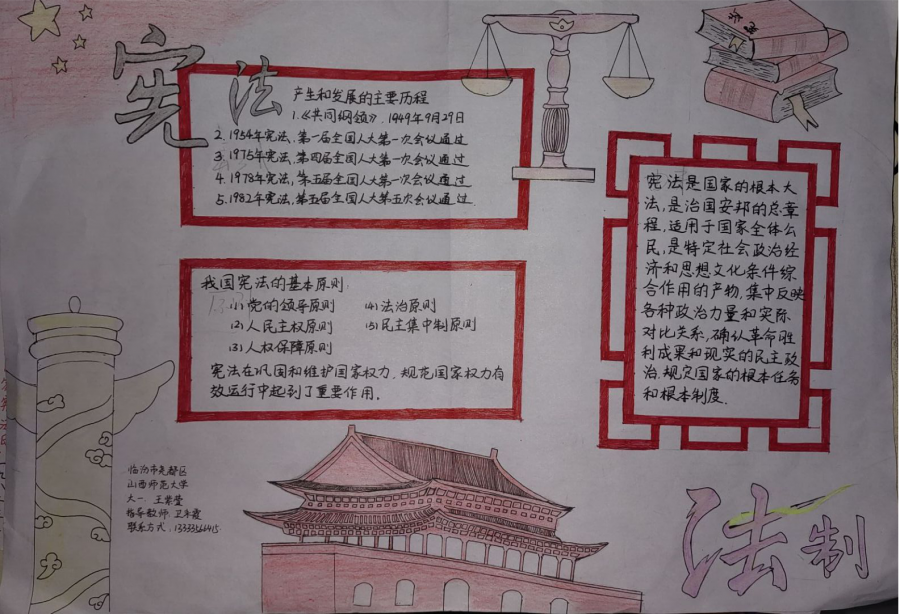 宪法
产生和发展的主要历程
1.《共同纲领》.1949年9月29日
2. 1954年宪法、第一届全国人大第一次会议通过
3. 1975年宪法、第四届全国人大第一次会议通过
4. 1978年宪法,第五届全国人大第一次会议通过
5. 1982年宪法、第五届全国人大第五次会议通过
我国宪法的基本原则
(1)党的领导原则 (4)法治原则
(2)人民主权原则 (5)民主集中制原则
(3)人权保障原则
宪法在巩固和维护国家权力、规范国家权力有
效运行中起到了重要作用.
宪法是国家的根本大
法,是治国安邦的总章
程,适用于国家全体公
民,是特定社会政治经
济和思想文化条件综
合作用的产物,集中反映
各种政治力量和实际
对比关系,确认革命胜
利成果和现实的民主政
治,规定国家的根本任务
和根本制度.
临汾市尧都区
山西师范大学
大一 王紫莹
指导教师
联系方式:
法制